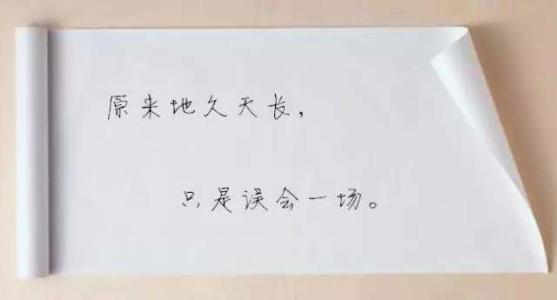 原来地久天长，
只是误会一场。